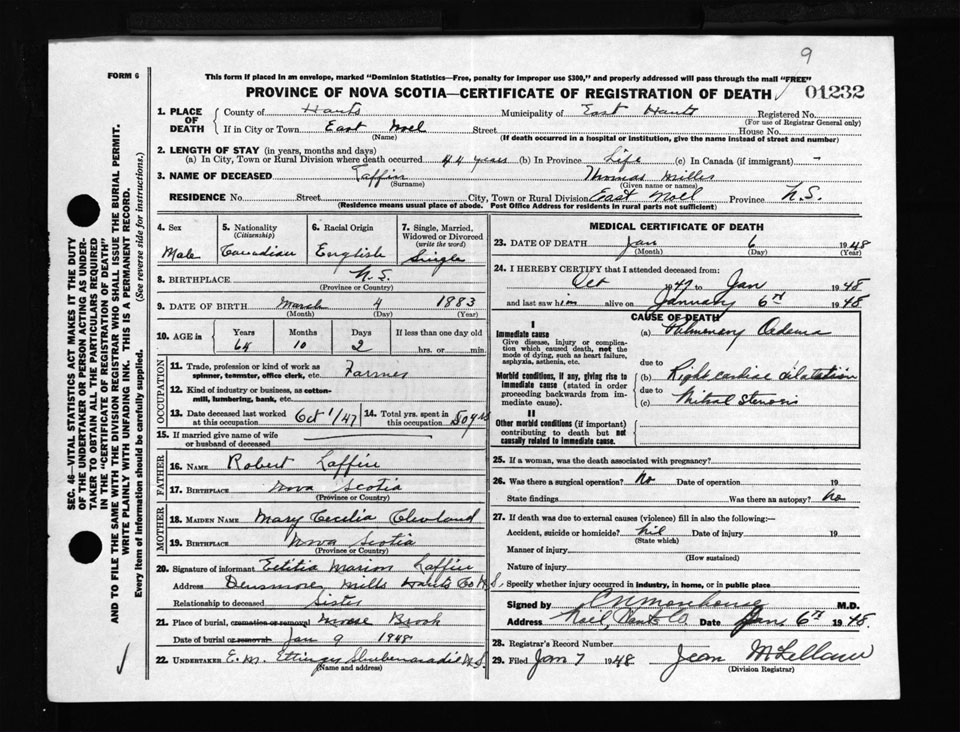 9
FORM 6
This form if placed in an envelope, marked "Dominion Statistics—Free, penalty for improper use $300," and properly addressed will pass through the mail "FREE"
PROVINCE OF NOVA SCOTIA—CERTIFICATE OF REGISTRATION OF DEATH 01232
1. PLACE OF DEATH County of Hants Municipality of East Hants Registered No.
(For use of Registrar General only)
If in City or Town East Noel Street House No.
(Name) (If death occurred in a hospital or institution, give the name instead of street and number)
2. LENGTH OF STAY (in years, months and days)
(a) In City, Town or Rural Division where death occurred 44 years (b) In Province Life (c) In Canada (if immigrant) -
3. NAME OF DECEASED Laffin Thomas Miller
(Surname) (Given name or names)
RESIDENCE No. Street City, Town or Rural Division East Noel Province N.S.
(Residence means usual place of abode. Post Office Address for residents in rural parts not sufficient)
4. Sex Male
5. Nationality (Citizenship) Canadian
6. Racial Origin English
7. Single, Married, Widowed or Divorced (write the word) Single
8. BIRTHPLACE N.S.
(Province or Country)
9. DATE OF BIRTH March 4 1883
(Month) (Day) (Year)
10. AGE in Years Months Days If less than one day old
64 10 2 hrs. or min.
OCCUPATION
11. Trade, profession or kind of work as spinner, teamster, office clerk, etc. Farmer
12. Kind of industry or business, as cotton-mill, lumbering, bank, etc.
13. Date deceased last worked at this occupation Oct 1/47
14. Total yrs. spent in this occupation 50 yrs
15. If married give name of wife or husband of deceased
FATHER
16. NAME Robert Laffin
17. BIRTHPLACE Nova Scotia
(Province or Country)
MOTHER
18. MAIDEN NAME Mary Cecilia Cleveland
19. BIRTHPLACE Nova Scotia
(Province or Country)
20. Signature of informant Letitia Marion Laffin
Address Densmores Mills Hants Co N.S.
Relationship to deceased Sister
21. Place of burial, cremation or removal Moose Brook
Date of burial or removal Jan 9 1948
22. UNDERTAKER E.M. Ettinger Shubenacadie N.S.
(Name and address)
MEDICAL CERTIFICATE OF DEATH
23. DATE OF DEATH Jan 6 1948
(Month) (Day) (Year)
24. I HEREBY CERTIFY that I attended deceased from:
Oct 1947 to Jan 1948
and last saw him alive on January 6th 1948
CAUSE OF DEATH
I
Immediate cause
Give disease, injury or complication which caused death, not the mode of dying, such as heart failure, asphyxia, asthenia, etc.
(a) Pulmonary Oedema
due to
Morbid conditions, if any, giving rise to immediate cause (stated in order proceeding backwards from immediate cause).
(b) Right cardiac dilatation
due to
(c) Mitral Stenosis
II
Other morbid conditions (if important) contributing to death but not causally related to immediate cause.
25. If a woman, was the death associated with pregnancy?
26. Was there a surgical operation? No Date of operation 19
State findings Was there an autopsy? No
27. If death was due to external causes (violence) fill in also the following:—
Accident, suicide or homicide? Nil Date of injury 19
(State which)
Manner of injury
(How sustained)
Nature of injury
Specify whether injury occurred in industry, in home, or in public place
Signed by M.D.
Address Noel, Hants Co Date Jan 6th 1948.
28. Registrar's Record Number
29. Filed Jan 7 1948 Jean McLellan
(Division Registrar)
SEC. 46—VITAL STATISTICS ACT MAKES IT THE DUTY
OF THE UNDERTAKER OR PERSON ACTING AS UNDER-
TAKER TO OBTAIN ALL THE PARTICULARS REQUIRED
IN THE "CERTIFICATE OF REGISTRATION OF DEATH"
AND TO FILE THE SAME WITH THE DIVISION REGISTRAR WHO SHALL ISSUE THE BURIAL PERMIT.
WRITE PLAINLY WITH UNFADING INK. THIS IS A PERMANENT RECORD.
Every item of information should be carefully supplied. (See reverse side for instructions.)